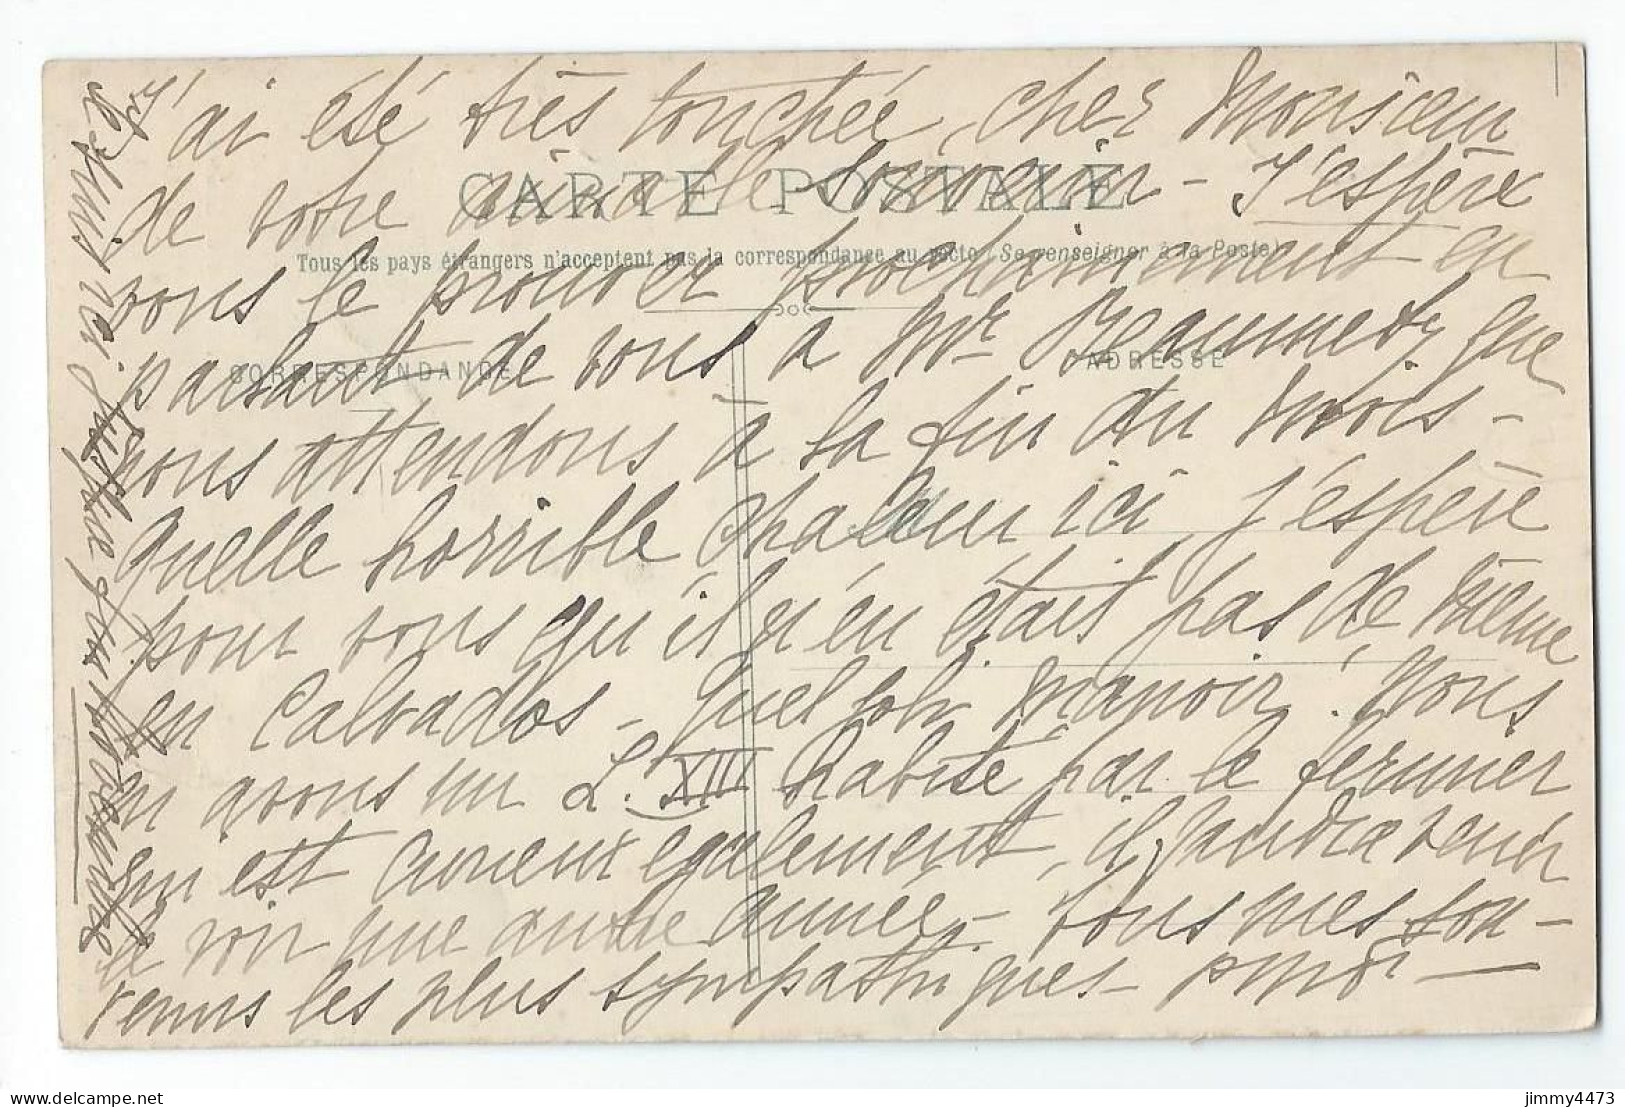 J'ai été très touchée, cher Monsieur
de votre aimable souvenir - J'espère
vous le prouver prochainement en
parlant de vous à Mr Beaumetz que
nous attendons à la fin du mois -
Quelle horrible chaleur ici j'espère
pour vous qu'il n'en était pas de même
en Calvados - Quel joli manoir ! Nous
en avons un L. XIII habité par le fermier
qui est curieux également, il faudra venir
le voir une autre année - Tous mes sou-
venirs les plus sympathiques -
CARTE POSTALE
Tous les pays étrangers n'acceptent pas la correspondance au recto (Se renseigner à la Poste)
CORRESPONDANCE
ADRESSE
Je suis ici jusque
jimmy4473